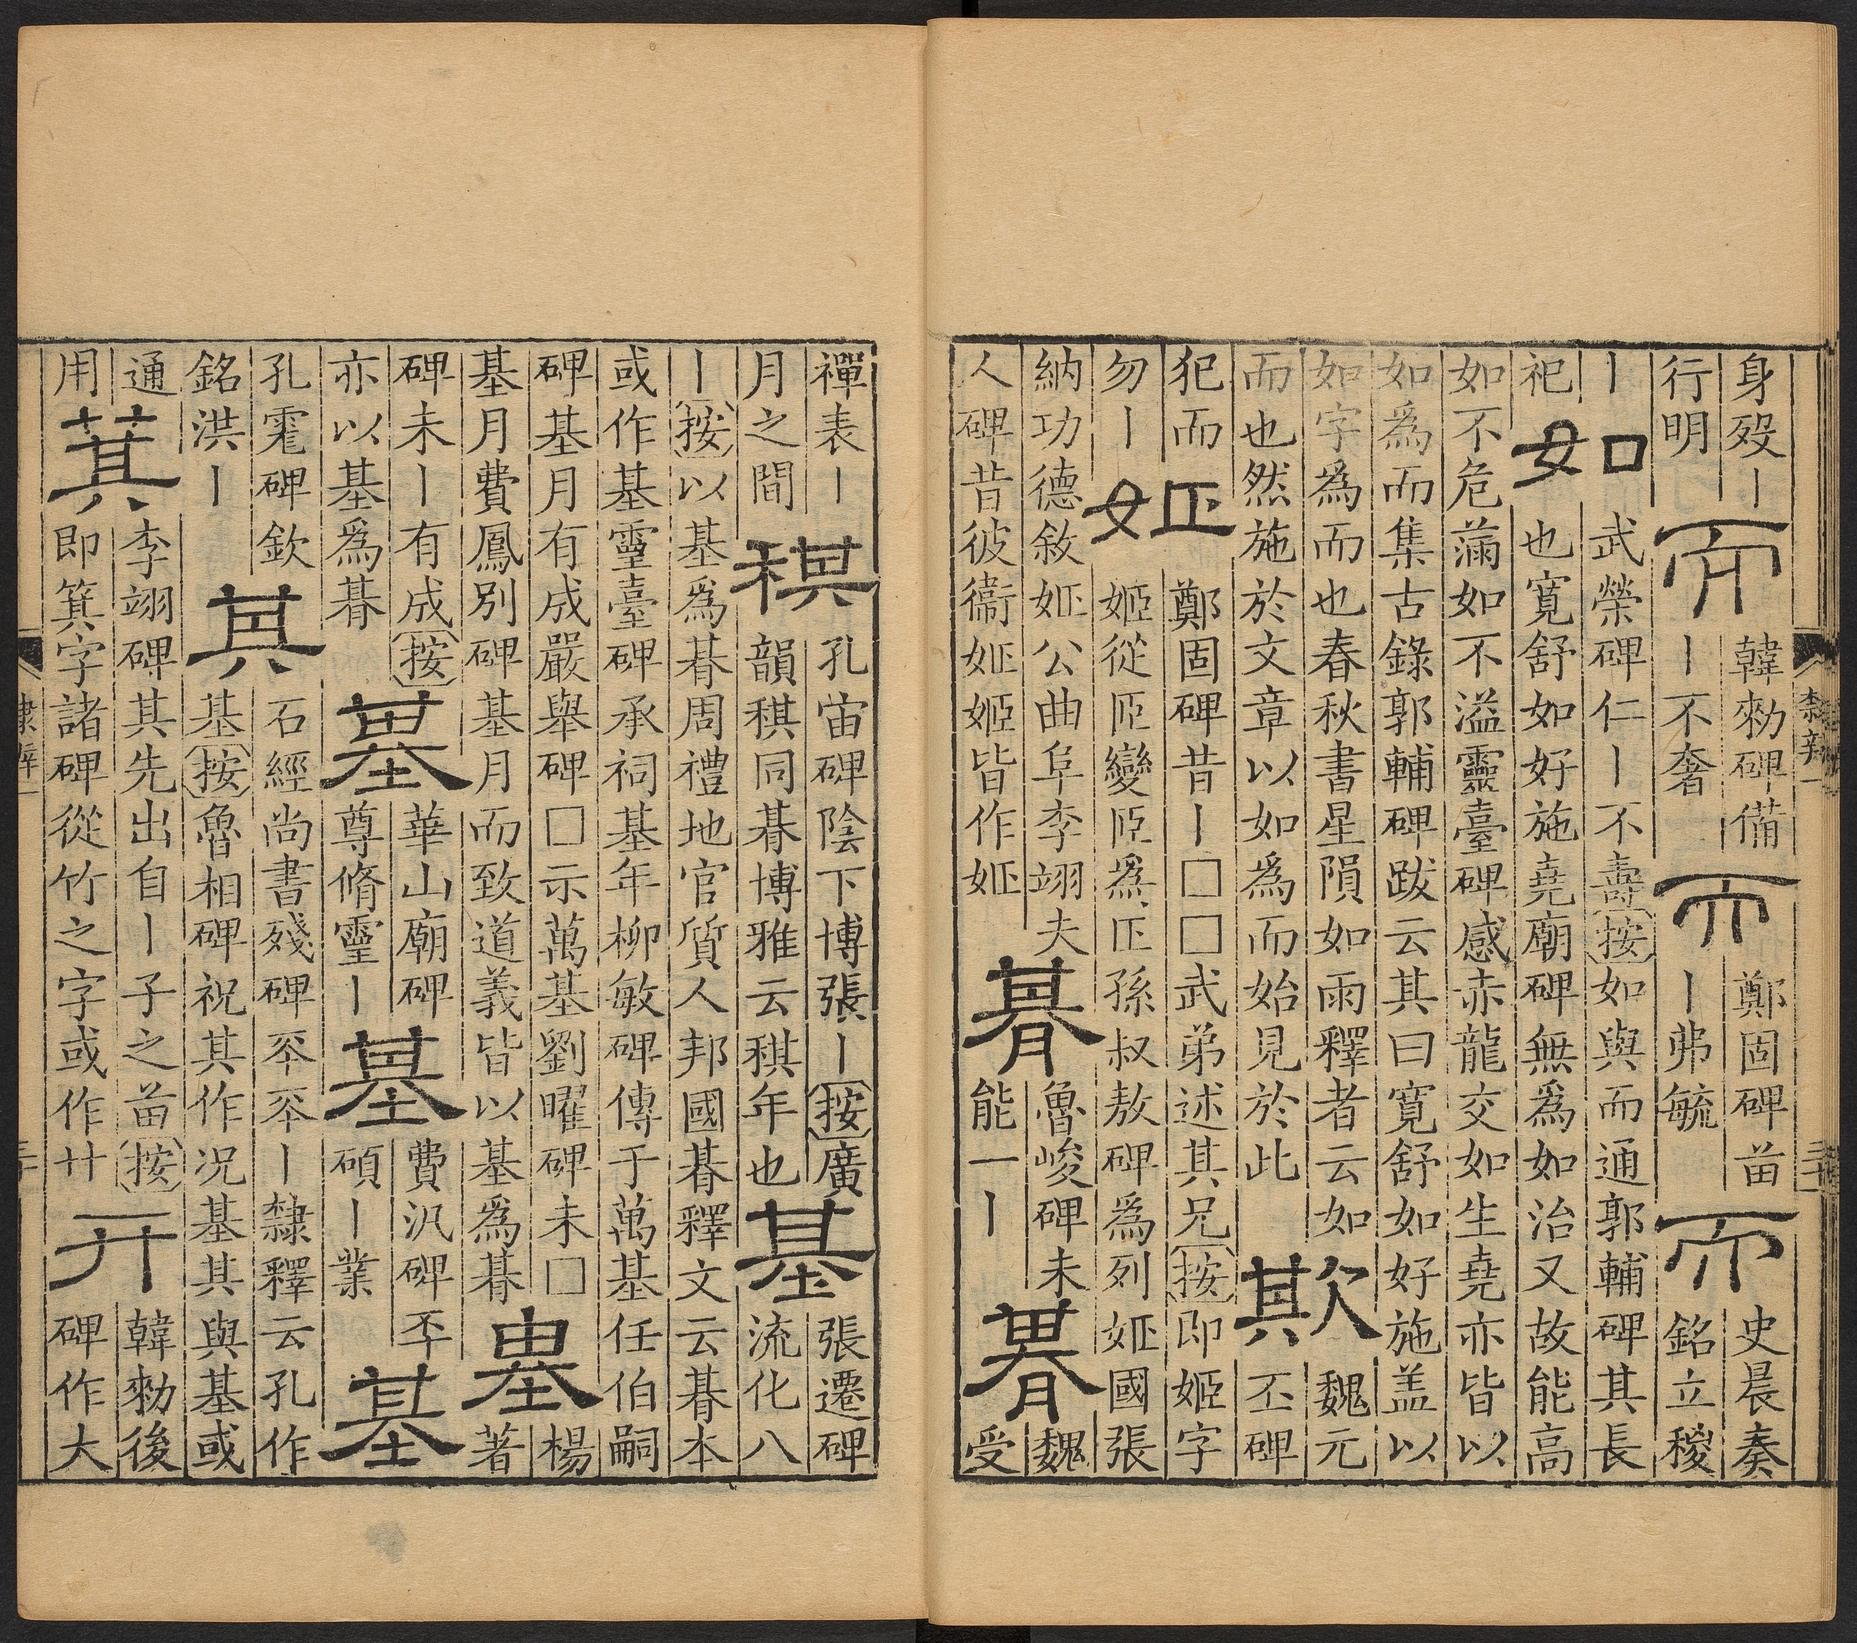 身歿丨
行明
而
韓勑碑備
丨不奢
而
鄭固碑苗
丨弗毓
而
史晨奏
銘立稷
丨
祀
如
武榮碑仁丨不壽按如與而通郭輔碑其長
也寬舒如好施堯廟碑無爲如治又故能高
如不危滿如不溢靈臺碑感赤龍交如生堯亦皆以
如爲而集古錄郭輔碑跋云其曰寬舒如好施盖以
如字爲而也春秋書星隕如雨釋者云如
而也然施於文章以如爲而始見於此
欺
魏元
丕碑
犯而
勿丨
姬
鄭固碑昔丨□□武弟述其兄按即姬字
姬從𦣞變𦣞爲孫叔敖碑爲列姬國張
納功德敘姬公曲阜李翊夫
人碑昔彼衞姬姬皆作姬
朞
魯峻碑未
能一丨
朞
魏
受
禪表丨
月之間
稘
孔宙碑陰下博張丨按廣
韻稘同朞博雅云稘年也
基
張遷碑
流化八
丨按以基爲朞周禮地官質人邦國朞釋文云朞本
或作基靈臺碑承祠基年柳敏碑傳于萬基任伯嗣
碑基月有成嚴舉碑□示萬基劉曜碑未□
基月費鳳別碑基月而致道義皆以基爲朞
基
楊
著
碑未丨有成按
亦以基爲朞
基
華山廟碑
尊脩靈丨
基
費汎碑丕
碩丨業
基
孔霮碑欽
銘洪丨
其
石經尚書殘碑丕丕丨隸釋云孔作
基按魯相碑祝其作况基其與基或
通
用
萁
李翊碑其先出自丨子之苗按
即箕字諸碑從竹之字或作艹
丌
韓勑後
碑作大
隸辨一